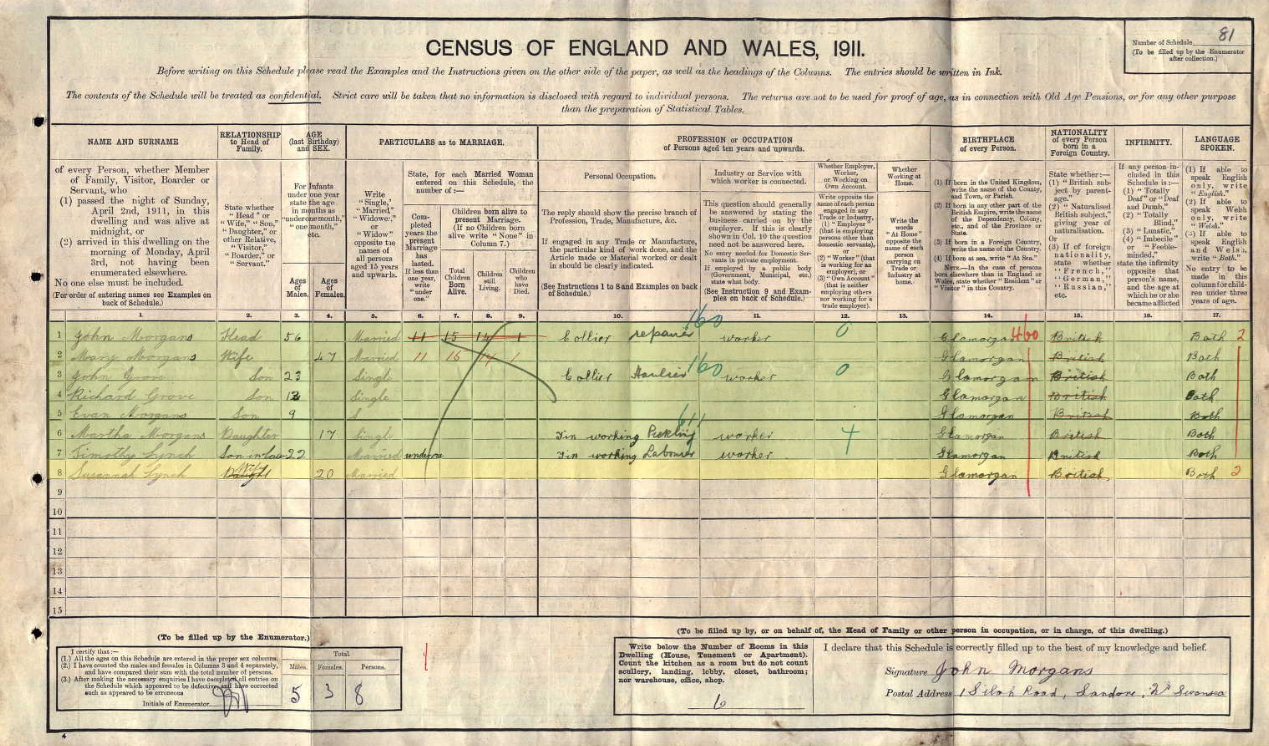 81
Number of Schedule
(To be filled up by the Enumerator
after collection.)
CENSUS OF ENGLAND AND WALES, 1911.
Before writing on this Schedule please read the Examples and the Instructions given on the other side of the paper, as well as the headings of the Columns. The entries should be written in Ink.
The contents of the Schedule will be treated as confidential. Strict care will be taken that no information is disclosed with regard to individual persons. The returns are not to be used for proof of age, as in connection with Old Age Pensions, or for any other purpose
than the preparation of Statistical Tables.
NAME AND SURNAME
of every Person, whether Member
of Family, Visitor, Boarder or
Servant, who
(1) passed the night of Sunday,
April 2nd, 1911, in this
dwelling and was alive at
midnight, or
(2) arrived in this dwelling on the
morning of Monday, April
3rd, not having been
enumerated elsewhere.
No one else must be included.
(For order of entering names see Examples on
back of Schedule.)
RELATIONSHIP
to Head of
Family.
State whether
"Head" or
"Wife," "Son,"
"Daughter," or
other Relative,
"Visitor,"
"Boarder," or
"Servant."
AGE
(last Birthday)
and SEX.
For Infants
under one year
state the age
in months as
"under one month,"
"one month,"
etc.
Ages
of
Males.
Ages
of
Females.
PARTICULARS as to MARRIAGE.
Write
"Single,"
"Married,"
"Widower,"
or
"Widow"
opposite the
names of
all persons
aged 15 years
and upwards.
State, for each Married Woman
entered on this Schedule, the
number of:—
Completed
years the
present
Marriage
has
lasted.
If less than
one year,
write
"under
one."
Children born alive to
present Marriage.
(If no Children born
alive write "None" in
Column 7.)
Total
Children
Born
Alive.
Children
still
Living.
Children
who
have
Died.
PROFESSION or OCCUPATION
of Persons aged ten years and upwards.
Personal Occupation.
The reply should show the precise branch of
Profession, Trade, Manufacture, &c.
If engaged in any Trade or Manufacture,
the particular kind of work done, and the
Article made or Material worked or dealt
in should be clearly indicated.
(See Instructions 1 to 8 and Examples on back
of Schedule.)
Industry or Service
with which worker is connected.
This question should generally
be answered by stating the
business carried on by the
employer. If this is clearly
shown in Col. 10 the question
need not be answered here.
No entry needed for Domestic Servants
in private employment.
If employed by a public body
(Government, Municipal, etc.)
state what body.
(See Instruction 9 and Examples
on back of Schedule.)
Whether Employer,
Worker,
or Working on
Own Account.
Write opposite the
name of each person
engaged in any
Trade or Industry,
(1) "Employer"
(that is employing
persons other than
domestic servants),
or
(2) "Worker" (that
is working for an
employer), or
(3) "Own Account"
(that is neither
employing others
nor working for a
trade employer).
Whether
Working at
Home.
Write the
words
"At Home"
opposite the
name of each
person
carrying on
Trade or
Industry at
home.
BIRTHPLACE
of every Person.
(1) If born in the United Kingdom,
write the name of the County,
and Town, or Parish.
(2) If born in any other part of the
British Empire, write the name
of the Dependency, Colony,
etc., and of the Province or
State.
(3) If born in a Foreign Country,
write the name of the Country.
(4) If born at sea, write "At Sea."
NOTE.—In the case of persons
born elsewhere than in England or
Wales, state whether "Resident" or
"Visitor" in this Country.
NATIONALITY
of every Person
born in a
Foreign Country.
State whether:—
(1) "British subject
by parentage."
(2) "Naturalised
British subject,"
giving year of
naturalisation.
Or
(3) If of foreign
nationality,
state whether
"French,"
"German,"
"Russian,"
etc.
INFIRMITY.
If any person included
in this
Schedule is:—
(1) "Totally
Deaf" or "Deaf
and Dumb,"
(2) "Totally
Blind,"
(3) "Lunatic,"
(4) "Imbecile"
or "Feeble-minded,"
state the infirmity
opposite that
person's name,
and the age at
which he or she
became afflicted
LANGUAGE
SPOKEN.
(1) If able to
speak English
only, write
"English."
(2) If able to
speak Welsh
only, write
"Welsh."
(3) If able to
speak English
and Welsh,
write "Both."
No entry to be
made in this
column for children
under three
years of age.
1. 2. 3. 4. 5. 6. 7. 8. 9. 10. 11. 12. 13. 14. 15. 16. 17.
1 John Morgans Head 56 Married 11 15 14 1 Collier repairer 160 worker 0 Glamorgan 460 British Both 2
2 Mary Morgans Wife 47 Married 11 1 Glamorgan British Both
3 John Grove Son 23 Single Collier Haulier 160 worker 0 Glamorgan British Both
4 Richard Grove Son Single Glamorgan British Both
5 Evan Morgans Son 9 S Glamorgan British Both
6 Martha Morgans Daughter 17 Single Tin working Pickling worker 4 Glamorgan British Both
7 Timothy Lynch Son in law 22 Married Tin working Labourer worker Glamorgan British Both
8 Susannah Lynch 20 Married Glamorgan British Both 2
9
10
11
12
13
14
15
(To be filled up by the Enumerator.)
I certify that:—
(1.) All the ages on this Schedule are entered in the proper sex columns.
(2.) I have counted the males and females in Columns 3 and 4 separately,
and have compared their sum with the total number of persons.
(3.) After making the necessary enquiries I have completed all entries on
the Schedule which appeared to be defective, and have corrected
such as appeared to be erroneous
Initials of Enumerator
Total
Males. Females. Persons.
5 3 8
(To be filled up by, or on behalf of, the Head of Family or other person in occupation, or in charge, of this dwelling.)
Write below the Number of Rooms in this
Dwelling (House, Tenement or Apartment).
Count the kitchen as a room but do not count
scullery, landing, lobby, closet, bathroom;
nor warehouse, office, shop.
6
I declare that this Schedule is correctly filled up to the best of my knowledge and belief.
Signature John Morgans
Postal Address 1 Siloh Road, Landore, Nr Swansea